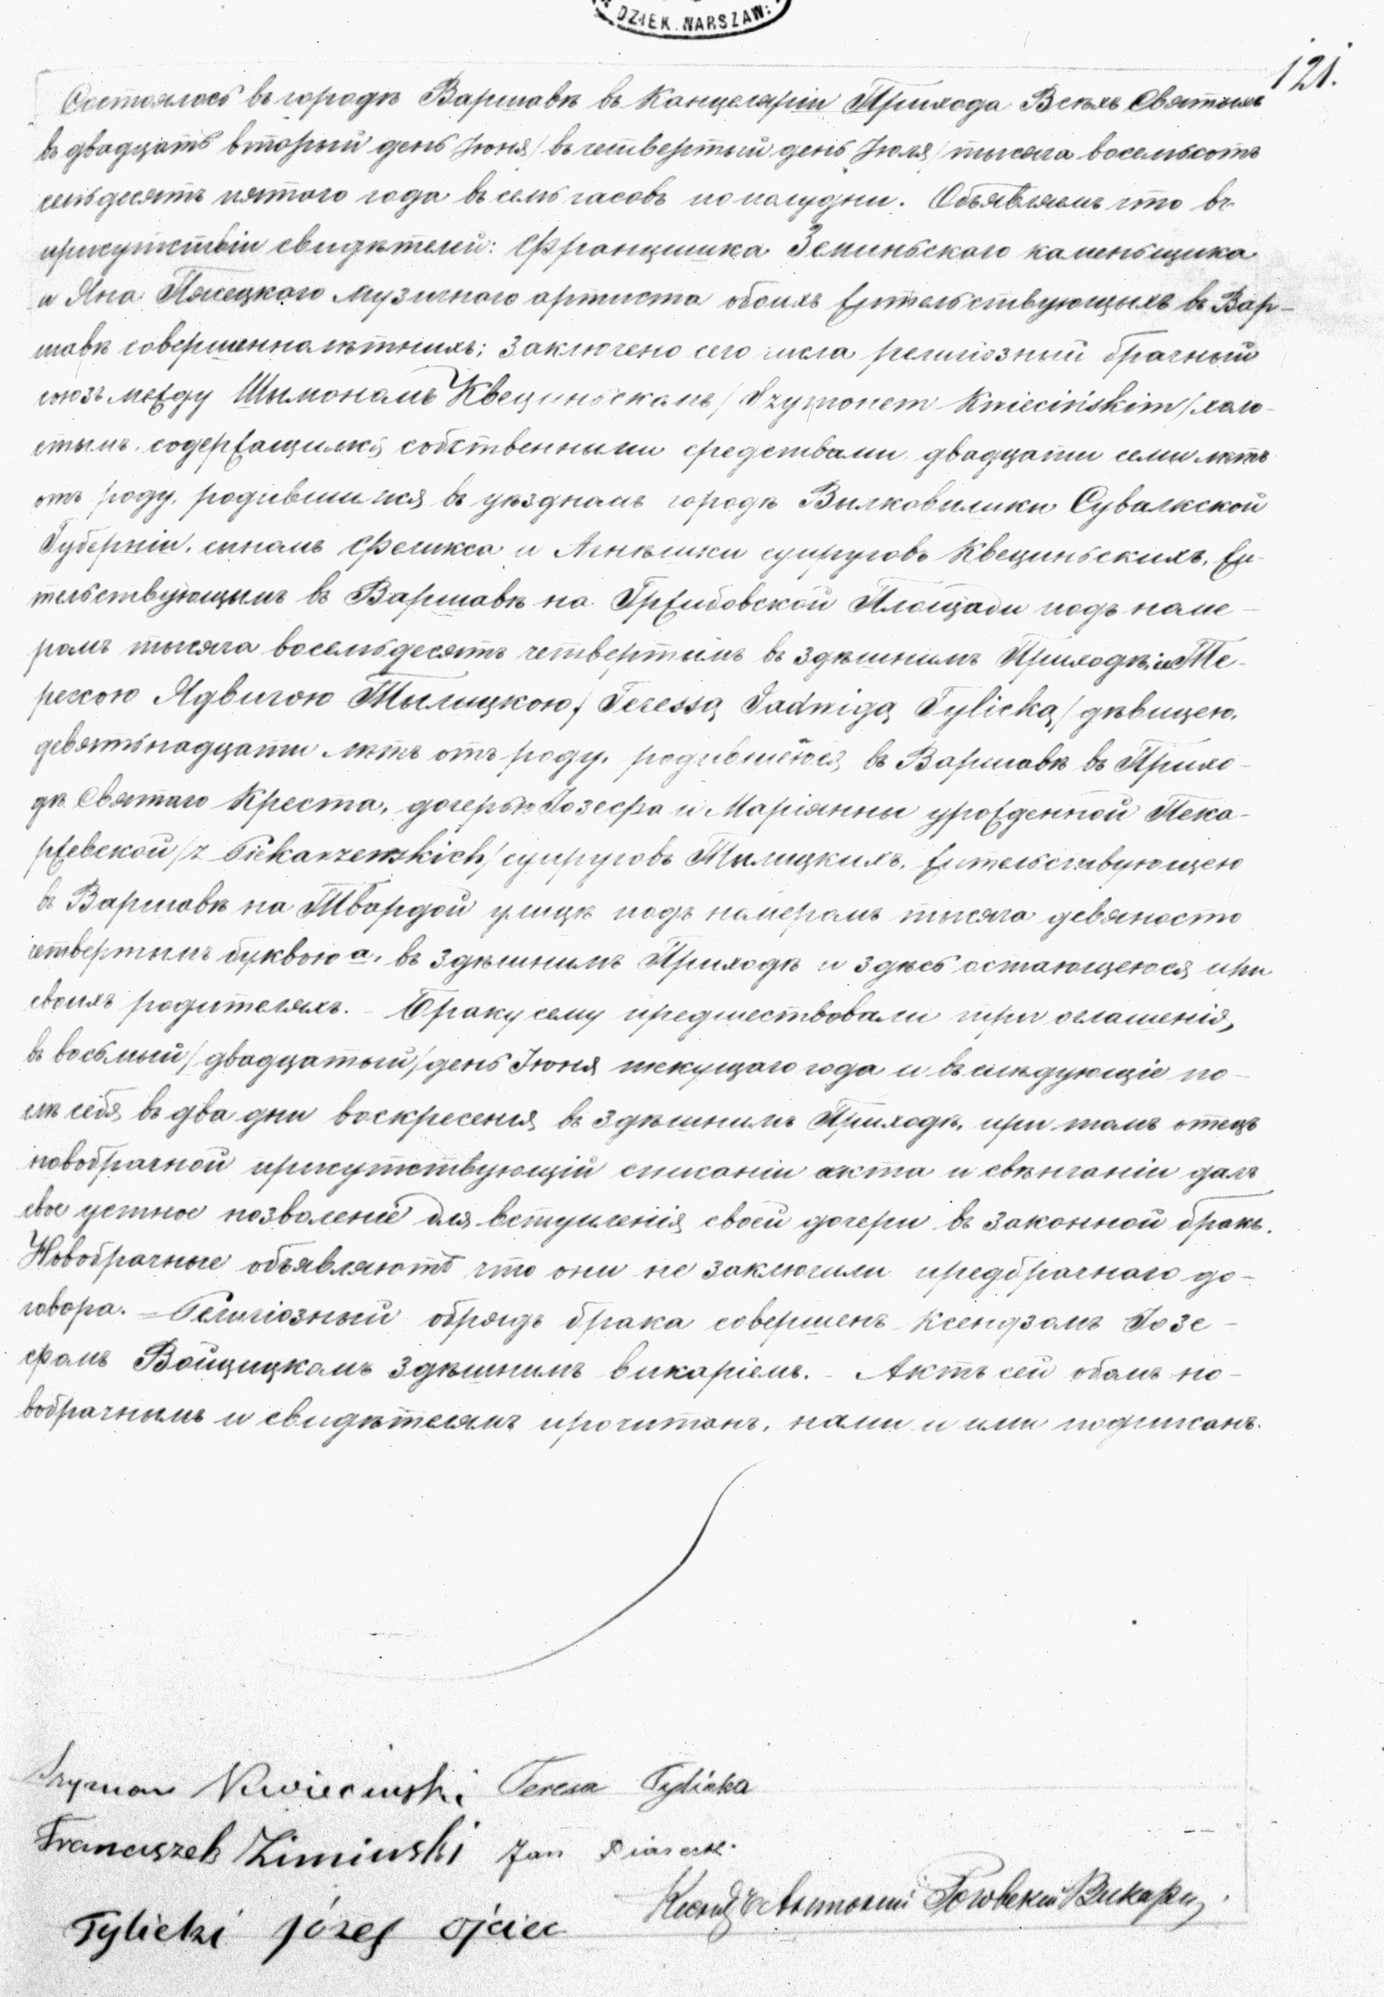 DZIEK. WARSZAW.
121.
Состоялось въ городѣ Варшавѣ въ Канцеляріи Прихода Всѣхъ Святыхъ
въ двадцать вторый день Іюня/въ четвертый день Іюля/тысяча восемьсотъ
семьдесятъ пятого года въ семь часовъ пополудни. Объявляемъ что въ
присутствіи свидѣтелей: Францишка Земиньского каменьщика
и Яна Пясецкого музичного артиста обоихъ жительствующыхъ въ Вар-
шавѣ совершеннолѣтнихъ; заключено сего числа религіозный брачный
союзъ между Шымономъ Квециньскомъ/Szymonem Kwiecińskim/холо-
стымъ, содержащимся собственными средствами двадцати семи лѣтъ
отъ роду, родившимся въ уѣздномъ городѣ Вилковишки Сувалкской
Губерніи, сыномъ Феликса и Агнѣшки супруговъ Квециньскихъ, жи-
тельствующымъ въ Варшавѣ на Гржибовской Площади подъ номе-
ромъ тысяча восемьдесятъ четвертымъ въ здѣшнимъ Приходѣ; и Те-
рессою Ядвигою Тылицкою,/Teressą Jadwigą Tylicką/дѣвицею,
девятьнадцати лѣтъ отъ роду, родившеюся въ Варшавѣ въ Прихо-
дѣ Святаго Креста, дочерью Іозефа и Маріянны урожденной Пека-
ржевской/z Piekarzewskich/супруговъ Тылицкихъ, жительствующею
въ Варшавѣ на Твардой улицѣ подъ номеромъ тысяча девяносто
четвертымъ буквою а, въ здѣшнимъ Приходѣ и здѣсь остающеюся при
своихъ родителяхъ. – Браку сему предшествовали три оглашенія,
въ восьмый/двадцатый/день Іюня текущаго года и въ слѣдующіе по-
слѣ себя въ два дни воскресенія въ здѣшнимъ Приходѣ, при томъ отецъ
новобрачной присутствующій списаніи акта и свѣнчаніи далъ
свое устное позволеніе для вступленія своей дочери въ законной бракъ.
Новобрачные объявляютъ что они не заключили предбрачнаго до-
говора. – Религіозный обрядъ брака совершенъ Ксендзомъ Іозе-
фомъ Войцицкомъ здѣшнимъ викаріемъ. – Актъ сей обамъ но-
вобрачнымъ и свидѣтелямъ прочитанъ, нами и ими подписанъ.
Szymon Kwieciński Teresa Tylicka
Franciszek Zimiński Jan Piasecki
Ксендзъ Антоній Роговскій Викарій
Tylicki józef ojciec